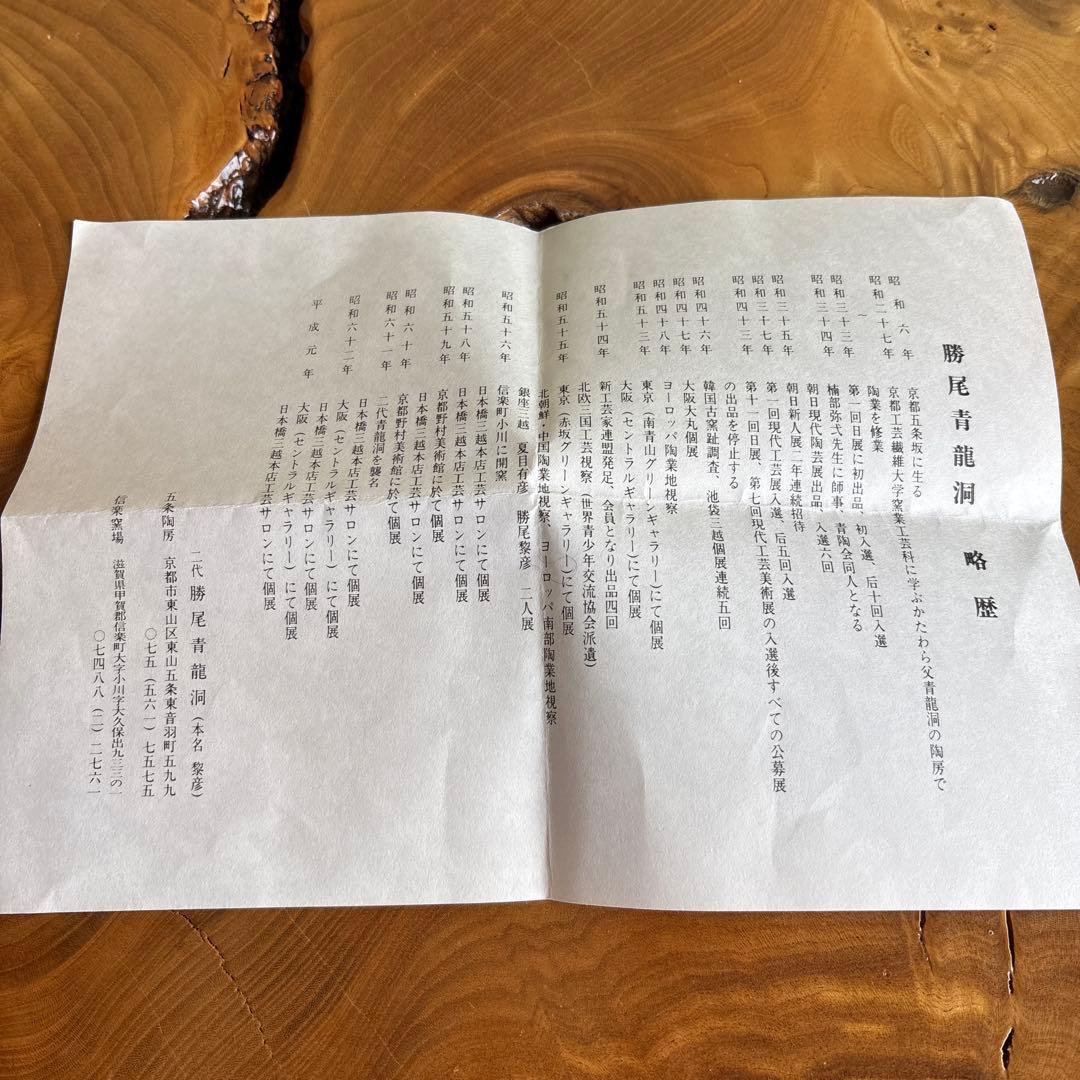 勝尾青龍洞 略歴
昭和六年 京都五条坂に生る
昭和二十七年 京都工芸繊維大学窯業工芸科に学ぶかたわら父青龍洞の陶房で
～ 陶業を修業
昭和三十三年 第一回日展に初出品、初入選、后十回入選
楠部弥弌先生に師事、青陶会同人となる
昭和三十四年 朝日現代陶芸展出品、入選六回
朝日新人展二年連続招待
昭和三十五年 第一回現代工芸展入選、后五回入選
昭和三十七年 第十一回日展、第七回現代工芸美術展の入選後すべての公募展
昭和四十三年 の出品を停止する
韓国古窯趾調査、池袋三越個展連続五回
昭和四十六年 大阪大丸個展
昭和四十七年 ヨーロッパ陶業地視察
昭和四十八年 東京（南青山グリーンギャラリー）にて個展
昭和五十三年 大阪（セントラルギャラリー）にて個展
新工芸家連盟発足、会員となり出品四回
昭和五十四年 北欧三国工芸視察（世界青少年交流協会派遣）
東京（赤坂グリーンギャラリー）にて個展
昭和五十五年 北朝鮮・中国陶業地視察、ヨーロッパ南部陶業地視察
銀座三越 夏目有彦 勝尾黎彦 二人展
信楽町小川に開窯
昭和五十六年 日本橋三越本店工芸サロンにて個展
昭和五十八年 日本橋三越本店工芸サロンにて個展
昭和五十九年 京都野村美術館に於て個展
日本橋三越本店工芸サロンにて個展
昭和六十年 京都野村美術館に於て個展
昭和六十一年 二代青龍洞を襲名
日本橋三越本店工芸サロンにて個展
昭和六十二年 大阪（セントラルギャラリー）にて個展
日本橋三越本店工芸サロンにて個展
平成元年 大阪（セントラルギャラリー）にて個展
日本橋三越本店工芸サロンにて個展
二代 勝尾青龍洞（本名 黎彦）
五条陶房 京都市東山区東山五条東音羽町五九九
〇七五（五六一）七五七五
信楽窯場 滋賀県甲賀郡信楽町大字小川字大久保出九三三の一
〇七四八八（二）二七六一